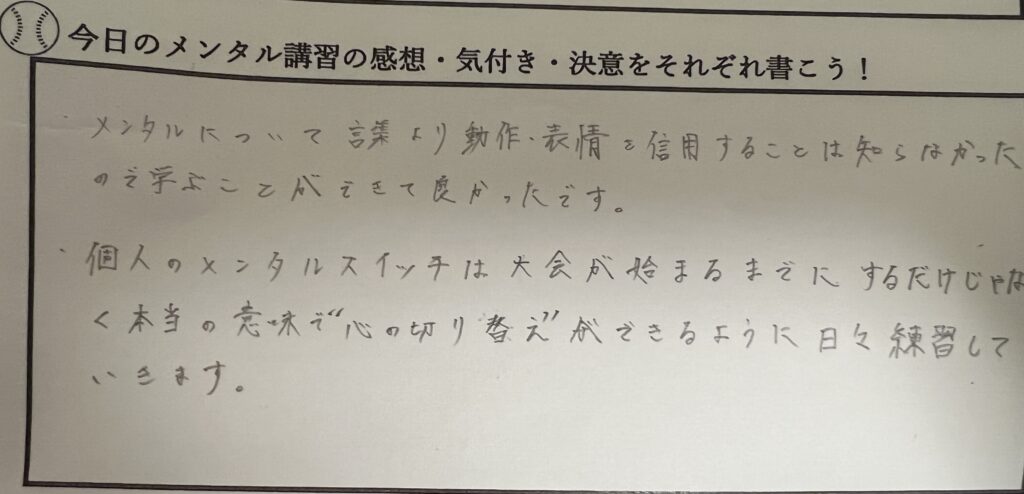 今日のメンタル講習の感想・気付き・決意をそれぞれ書こう！
・メンタルについて言葉より動作・表情を信用することは知らなかった
ので学ぶことができて良かったです。
・個人のメンタルスイッチは大会が始まるまでにするだけじゃな
く本当の意味で“心の切り替え”ができるように日々練習して
いきます。